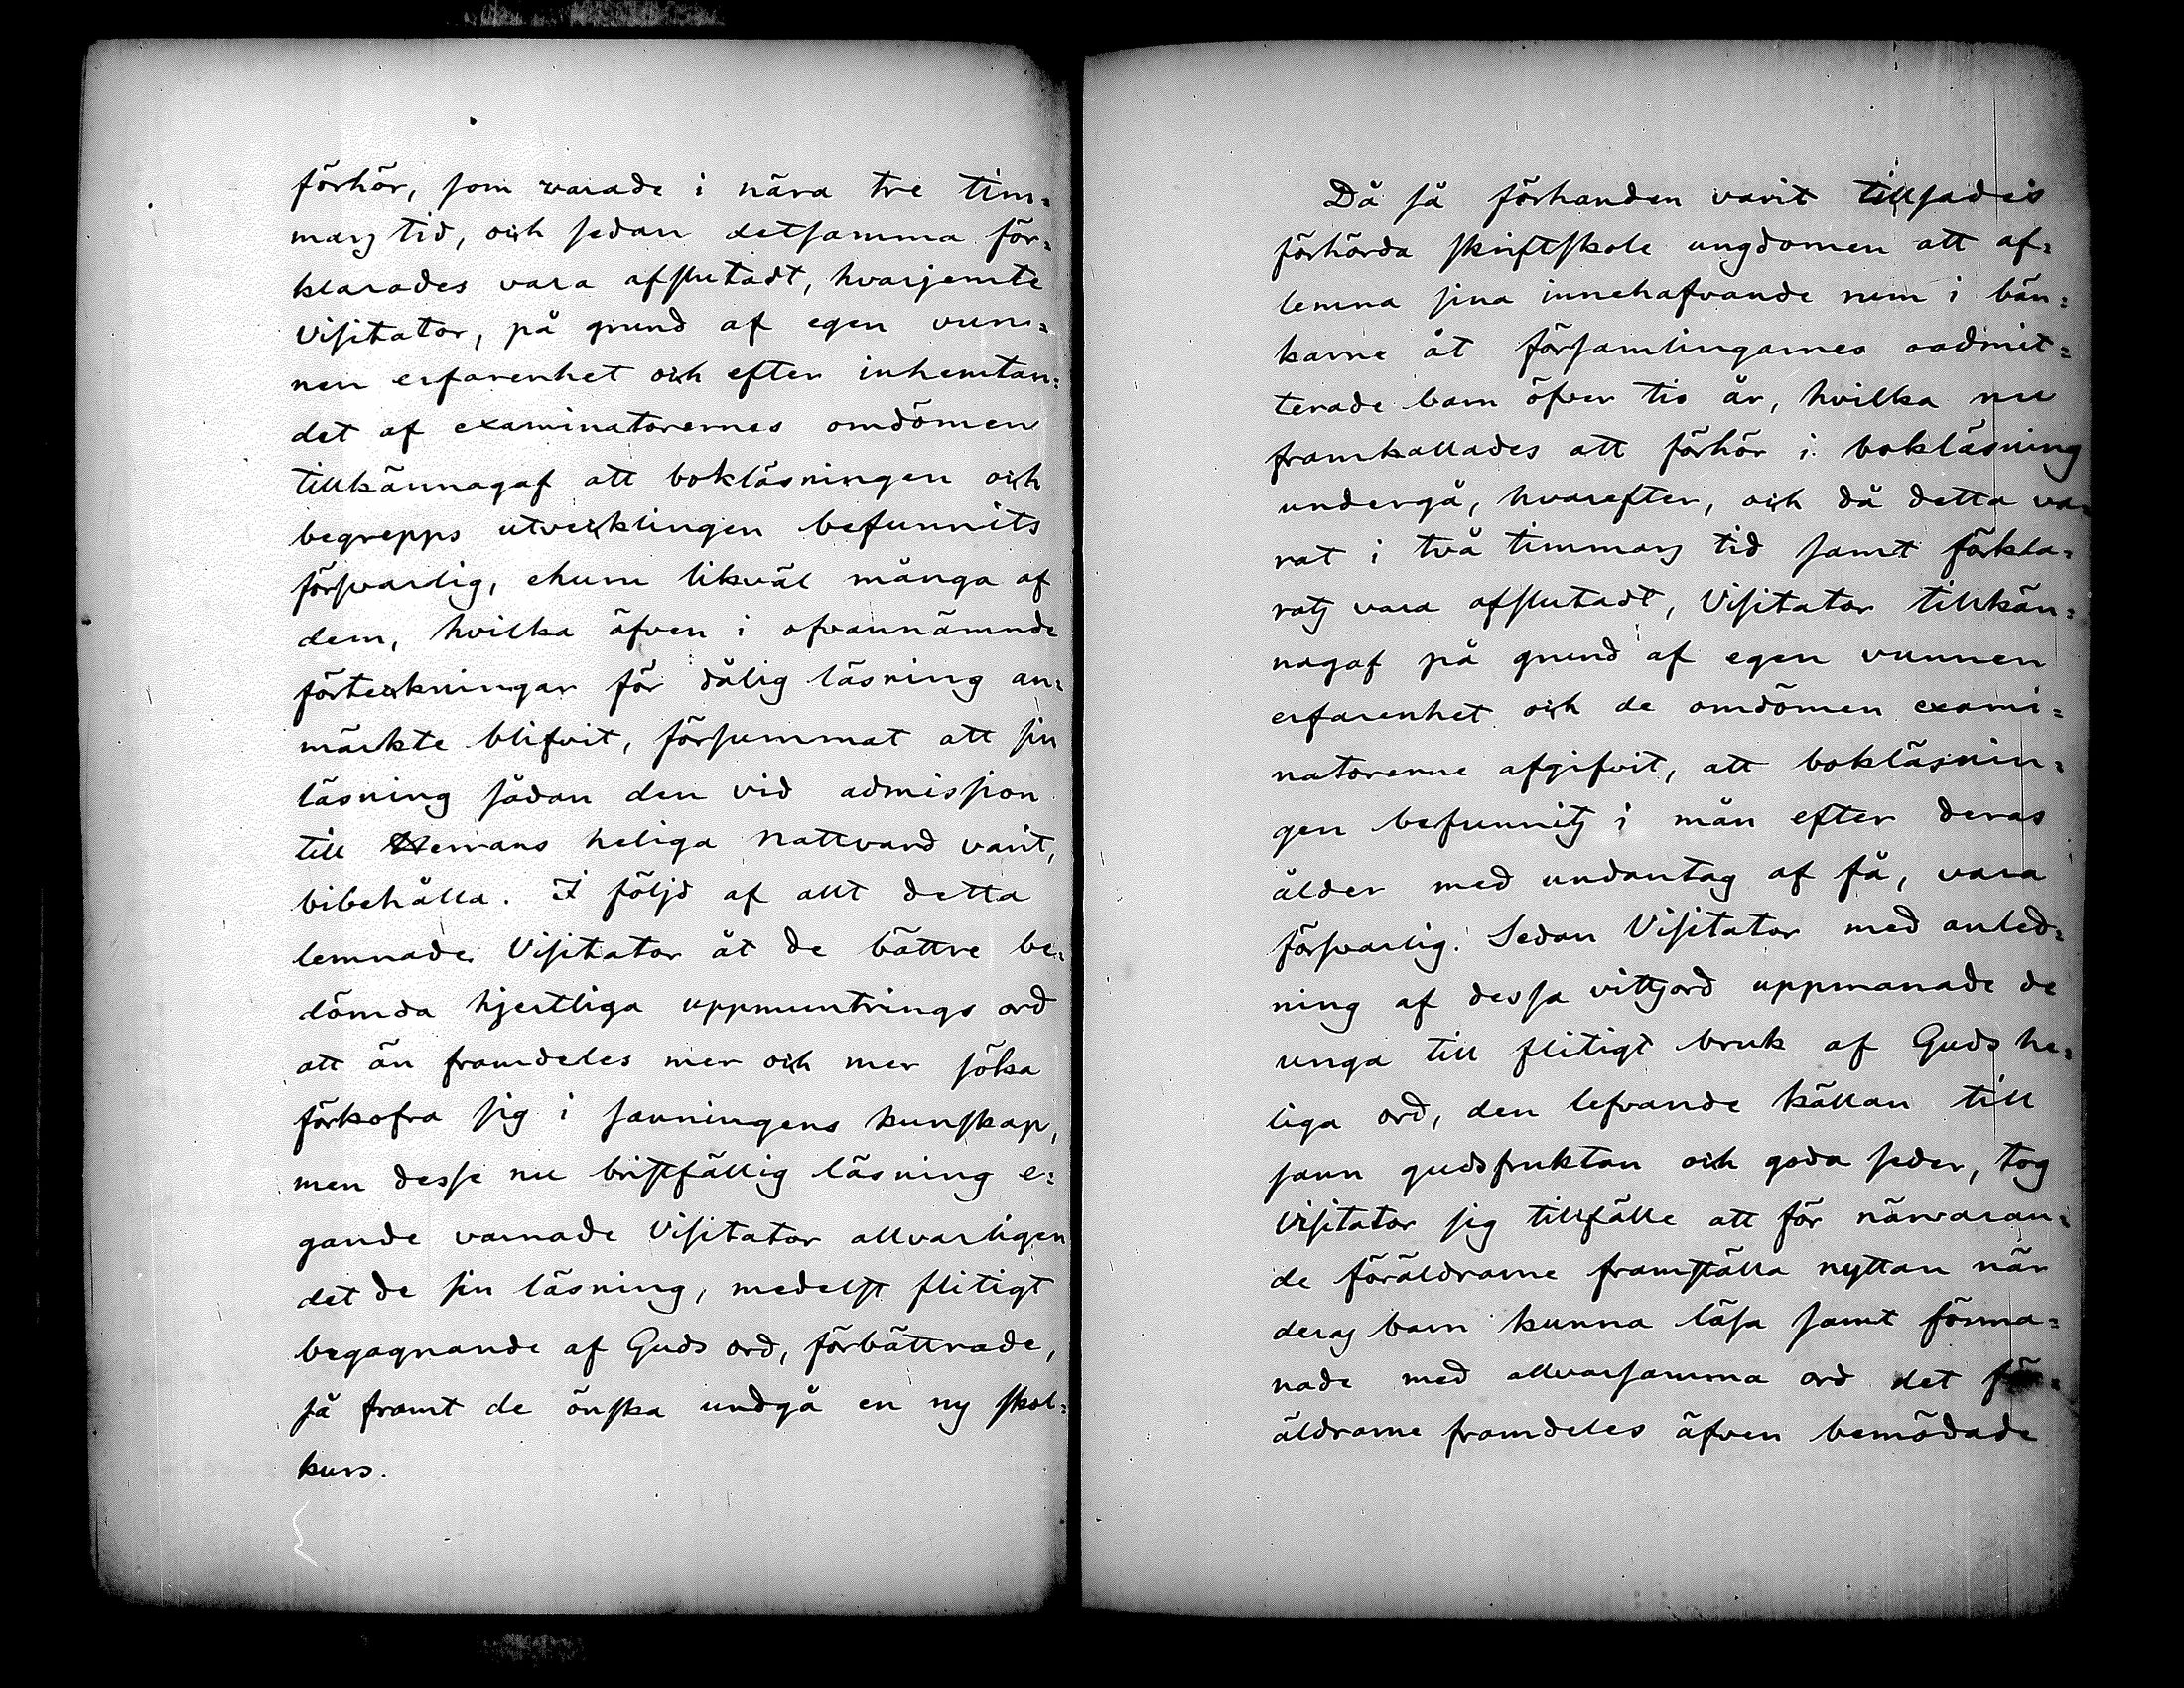 förhör, som varade i nära tre tim=
mars tid, och sedan detsamma för=
klarades vara afslutadt, hvarjemte
Visitator, på grund af egen vun=
nen erfarenhet och efter inhemtan=
det af examinatorernes omdömen
tillkännagaf att bokläsningen och
begrepps utvecklingen befunnits
försvarlig, ehuru likväl många af
dem, hvilka äfven i ofvannämnde
förteckningar för dålig läsning an=
märkte blifvit, försummat att sin
läsning sådan den vid admission
till Herrans heliga Nattvard varit,
bibehålla. I följd af allt detta
lemnade Visitator åt de bättre be=
dömda hjertliga uppmuntrings ord
att än framdeles mer och mer söka
förkofra sig i sanningens kunskap,
men desse nu bristfällig läsning e=
gande varnade Visitator allvarligen
det de sin läsning, medelst flitigt
begagnande af Guds ord, förbättrade,
så framt de önska undgå en ny skol=
kurs.
Då så förhanden varit tillsades
förhörda skriftskole ungdomen att af=
lemna sina innehafvande rum i bän=
karne åt församlingarnes oadmit=
terade barn öfver tio år, hvilka nu
framkallades att förhör i bokläsning
undergå, hvarefter, och då detta va=
rat i två timmars tid samt förkla=
rats vara afslutadt, Visitator tillkän=
nagaf på grund af egen vunnen
erfarenhet och de omdömen exami=
natorerne afgifvit, att bokläsnin=
gen befunnits i mån efter deras
ålder med undantag af få, vara
försvarlig. Sedan Visitator med anled=
ning af dessa vittsord uppmanade de
unga till flitigt bruk af Guds he=
liga ord, den lefvande källan till
sann gudsfruktan och goda seder, tog
Visitator sig tillfälle att för närvaran=
de föräldrarne framställa nyttan när
deras barn kunna läsa samt förma=
nade med allvarsamma ord det för=
äldrarne framdeles äfven bemödade